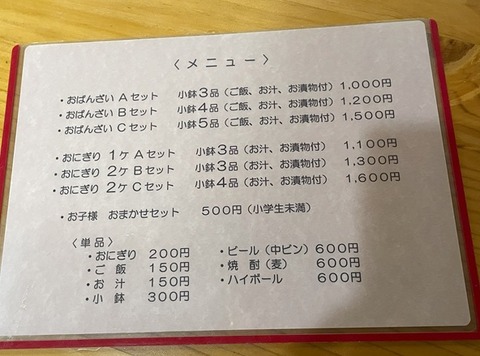 〈 メニュー 〉
・おばんざい Aセット　小鉢3品（ご飯、お汁、お漬物付）1,000円
・おばんざい Bセット　小鉢4品（ご飯、お汁、お漬物付）1,200円
・おばんざい Cセット　小鉢5品（ご飯、お汁、お漬物付）1,500円
・おにぎり 1ケ Aセット　小鉢3品（お汁、お漬物付）1,100円
・おにぎり 2ケ Bセット　小鉢3品（お汁、お漬物付）1,300円
・おにぎり 2ケ Cセット　小鉢4品（お汁、お漬物付）1,600円
・お子様 おまかせセット　500円（小学生未満）
〈 単品 〉
・おにぎり 200円
・ご 飯 150円
・お 汁 150円
・小 鉢 300円
・ビール（中ビン）600円
・焼 酎（麦）600円
・ハイボール 600円